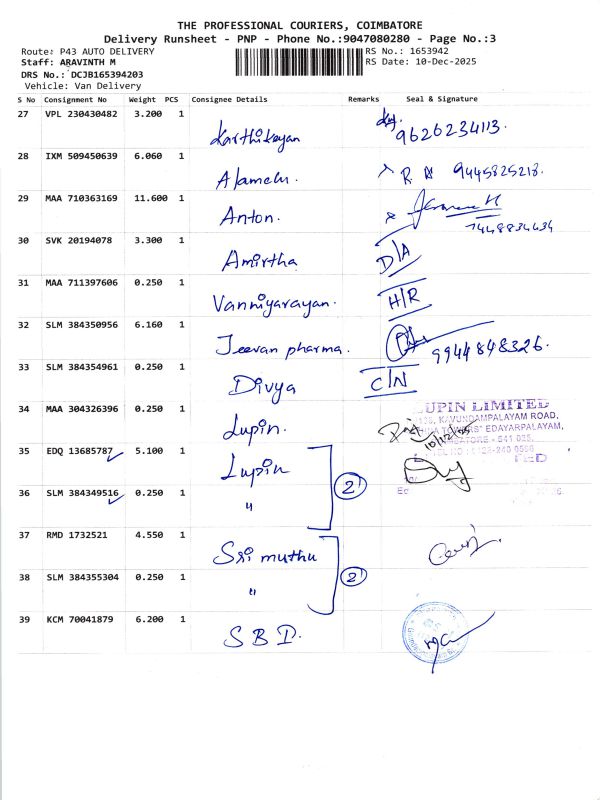 THE PROFESSIONAL COURIERS, COIMBATORE
Delivery Runsheet - PNP - Phone No.:9047080280 - Page No.:3
Route: P43 AUTO DELIVERY RS No.: 1653942
Staff: ARAVINTH M RS Date: 10-Dec-2025
DRS No.: DCJB165394203
Vehicle: Van Delivery
S No Consignment No Weight PCS Consignee Details Remarks Seal & Signature
27 VPL 230430482 3.200 1 Karthikeyan 9626234113.
28 IXM 509450639 6.060 1 Alamelu. R 9445825218.
29 MAA 710363169 11.600 1 Anton.
7448834434
30 SVK 20194078 3.300 1 Amirtha D/A
31 MAA 711397606 0.250 1 Vanniyarayan. H/R
32 SLM 384350956 6.160 1 Jeevan pharma. 9944848326.
33 SLM 384354961 0.250 1 Divya C/N
34 MAA 304326396 0.250 1 Lupin. 10/12/25
LUPIN LIMITED
KAVUNDAMPALAYAM ROAD,
EDAYARPALAYAM,
641 025.
35 EDQ 13685787 5.100 1 Lupin 2
36 SLM 384349516 0.250 1 "
37 RMD 1732521 4.550 1 Sri muthu 2
38 SLM 384355304 0.250 1 "
39 KCM 70041879 6.200 1 S B I.